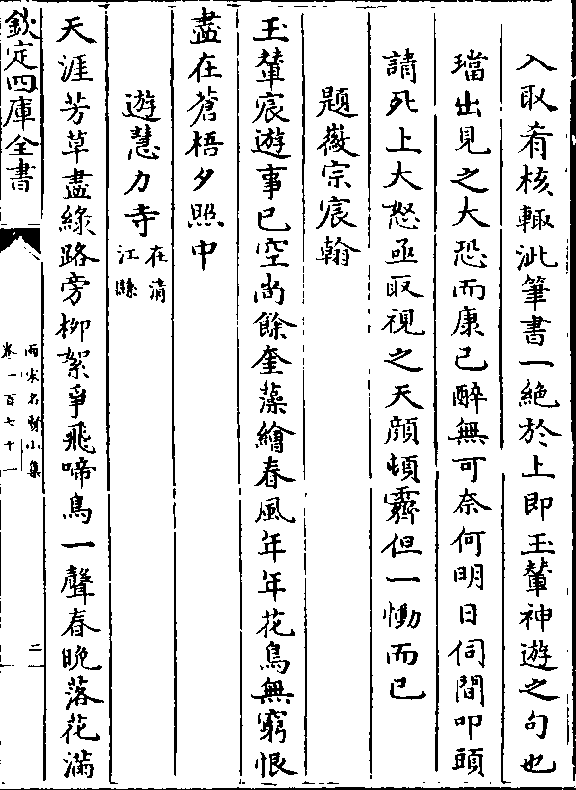 入取肴核輙泚筆書一絶於上即玉輦神遊之句也
璫出見之大恐而康已醉無可奈何明日伺間叩頭
請死上大怒亟取視之天顔頓霽但一慟而已
題徽宗宸翰
玉輦宸遊事已空尚餘奎藻繪春風年年花鳥無窮恨
盡在蒼梧夕照中
遊慧力寺在清江縣
天涯芳草盡緑路旁柳絮爭飛啼鳥一聲春晩落花滿
欽定四庫全書
兩宋名賢小集
卷一百七十一
二